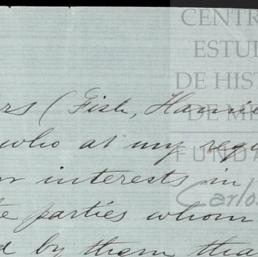 CENTR
ESTU
DE HIST
DE ME
FUNDA
Carlos
rs (Fish, Hannie
who at my requ
interests in
parties whom
d by them tha